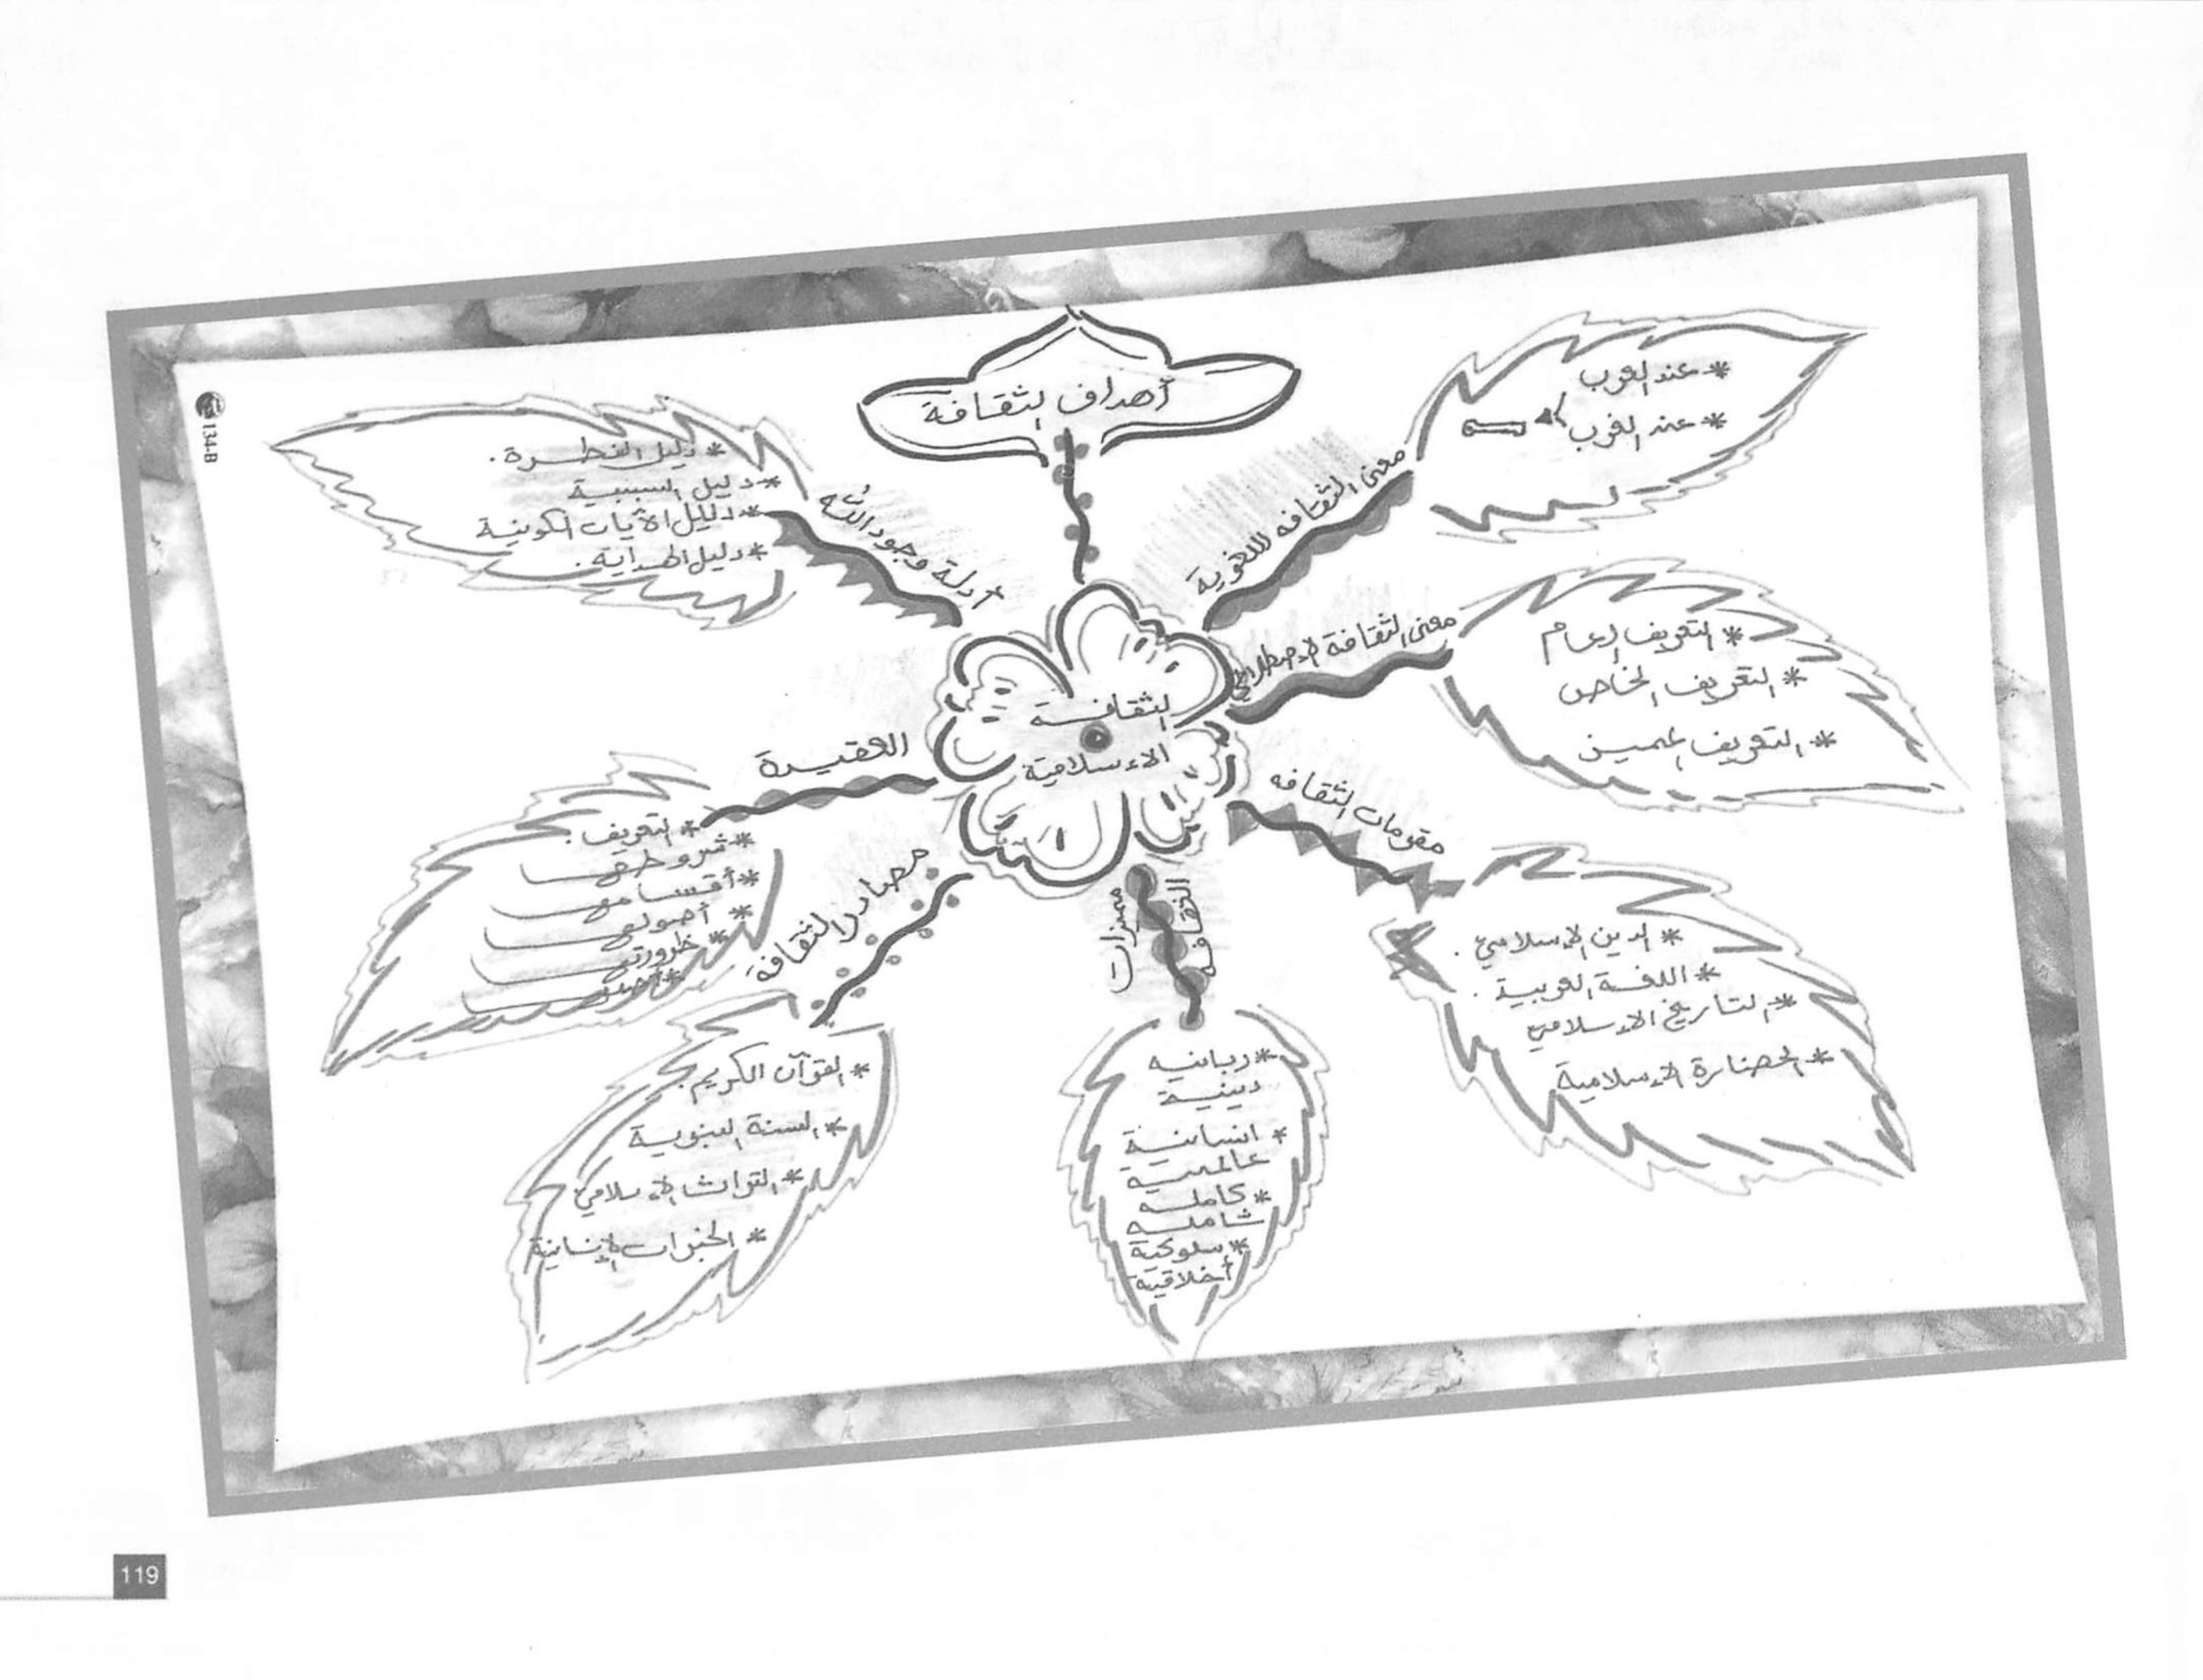 أهداف الثقافة
معنى الثقافه اللغوية
* عند العرب
* عند الغرب
معنى الثقافة الإصطلاحي
* التعريف العام
* التعريف الخاص
* التعريف
مقومات الثقافه
* الدين الإسلامي .
* اللغة العربية .
* التاريخ الاسلامي
* الحضارة الإسلامية
مميزات
الثقافه
* ربانيه
دينية
* انسانية
عالمية
* كامله
شامله
* سلوكية
أخلاقية
مصادر الثقافة
* القرآن الكريم .
* السنة النبوية
* التراث الإسلامي
* الخبرات الإنسانية
العقيدة
* التعريف .
* شروطها
* أقسامها
* أصولها
* ضرورتها
أدلة وجود الله
* دليل الفطرة .
* دليل السببية
* دليل الآيات الكونية
* دليل الهداية .
الثقافة
الاسلامية
134-B
119